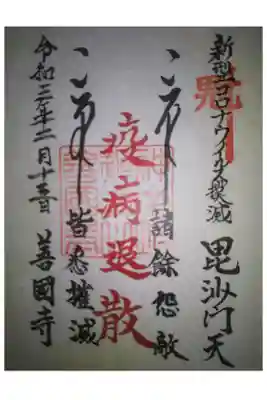 新型コロナウイルス撲滅 毘沙門天
諸餘怨敵
疫病退散
皆悉摧滅
令和三年二月十五日 善國寺